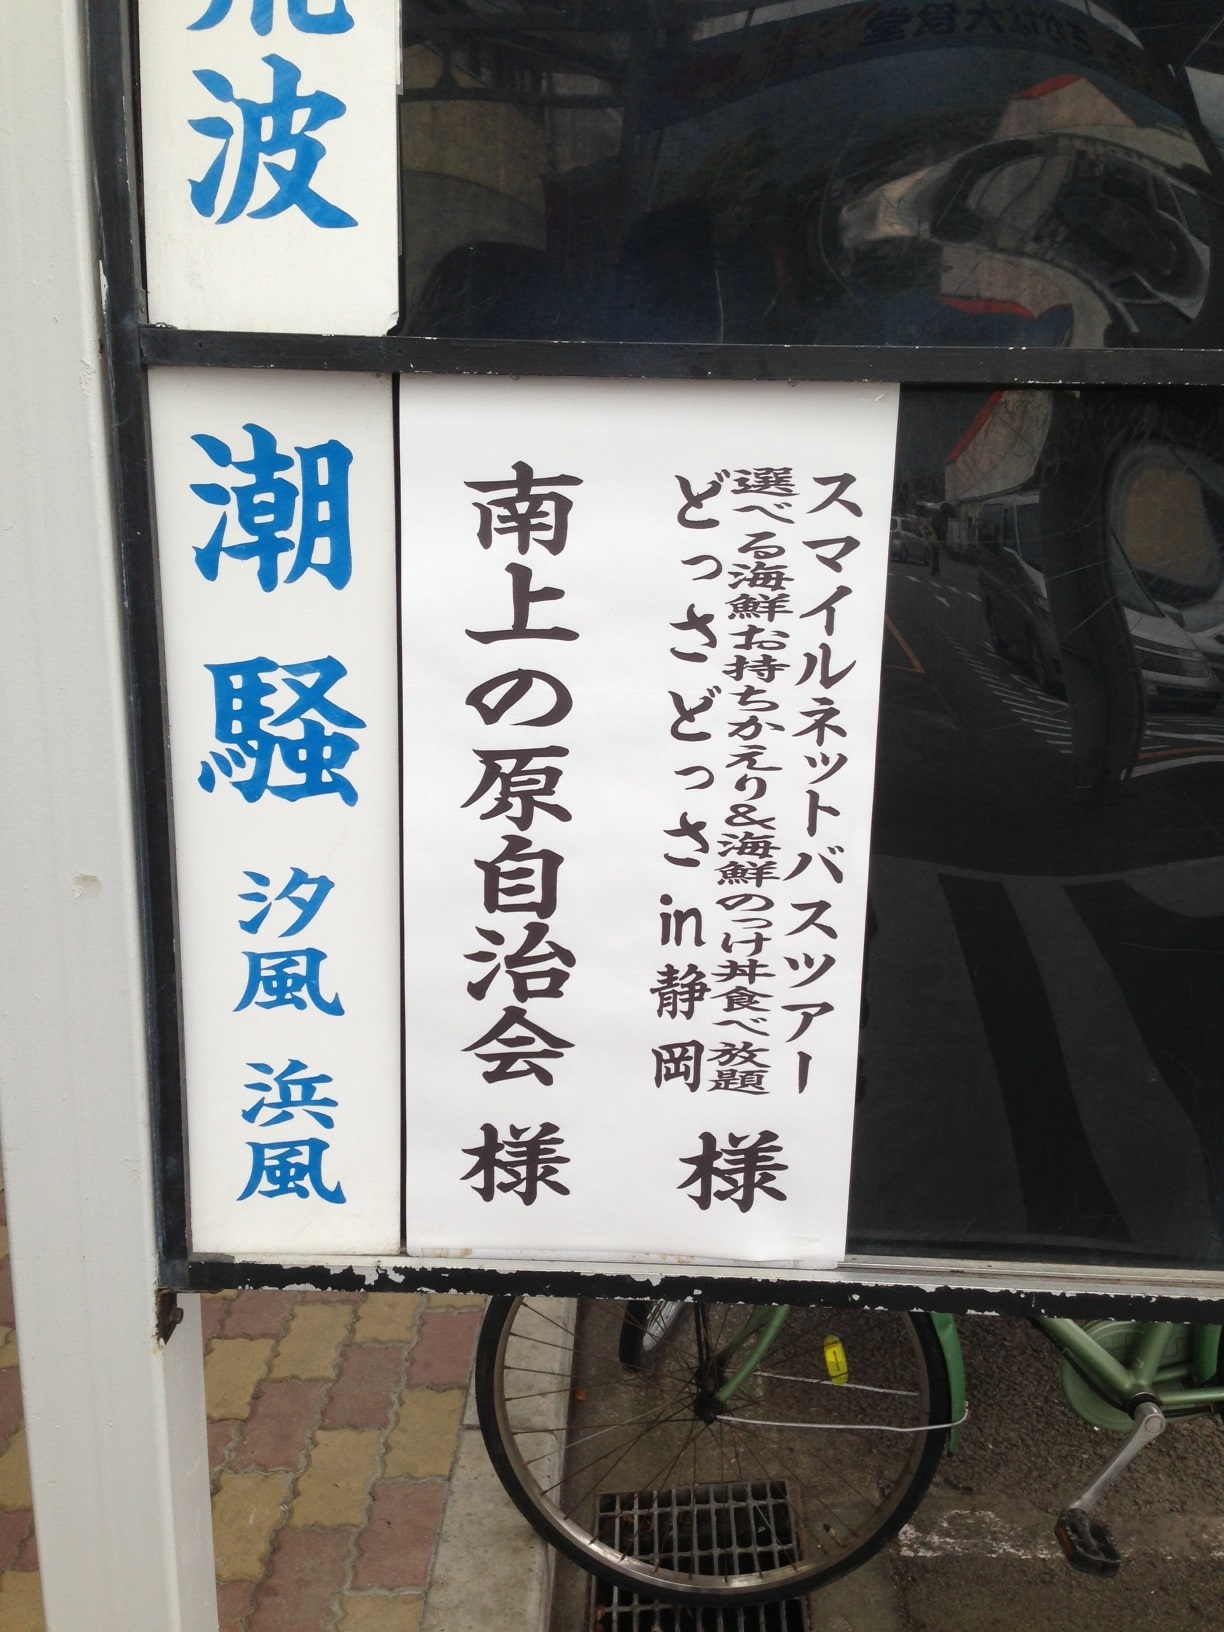 波
潮騒 汐風 浜風
スマイルネットバスツアー
選べる海鮮お持ちかえり&海鮮のっけ丼食べ放題
どっさどっさin静岡
様
南上の原自治会 様